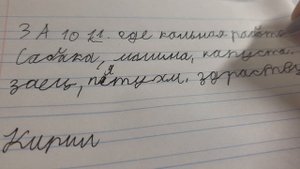 ЗА 10 11. где кольная работа
Собака, машина, капуста.
заец, петухи. здраству
Кирил